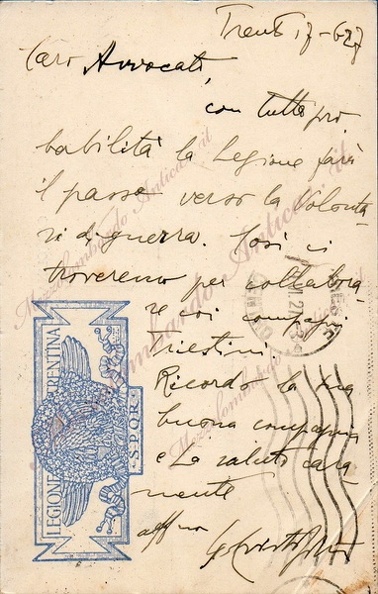 Trento 17-627
Caro Avvocato,
con tutta pro
babilità la Legione farà
il passo verso la Volonta
ri di guerra. Così ci
troveremo per collabora
re coi compagni
Triestini.
Ricordo la sua
buona compagnia
e La saluto cara
mente
aff/mo
LEGIONE TRENTINA
S.P.Q.R.
Mezzolombardo Antica.it